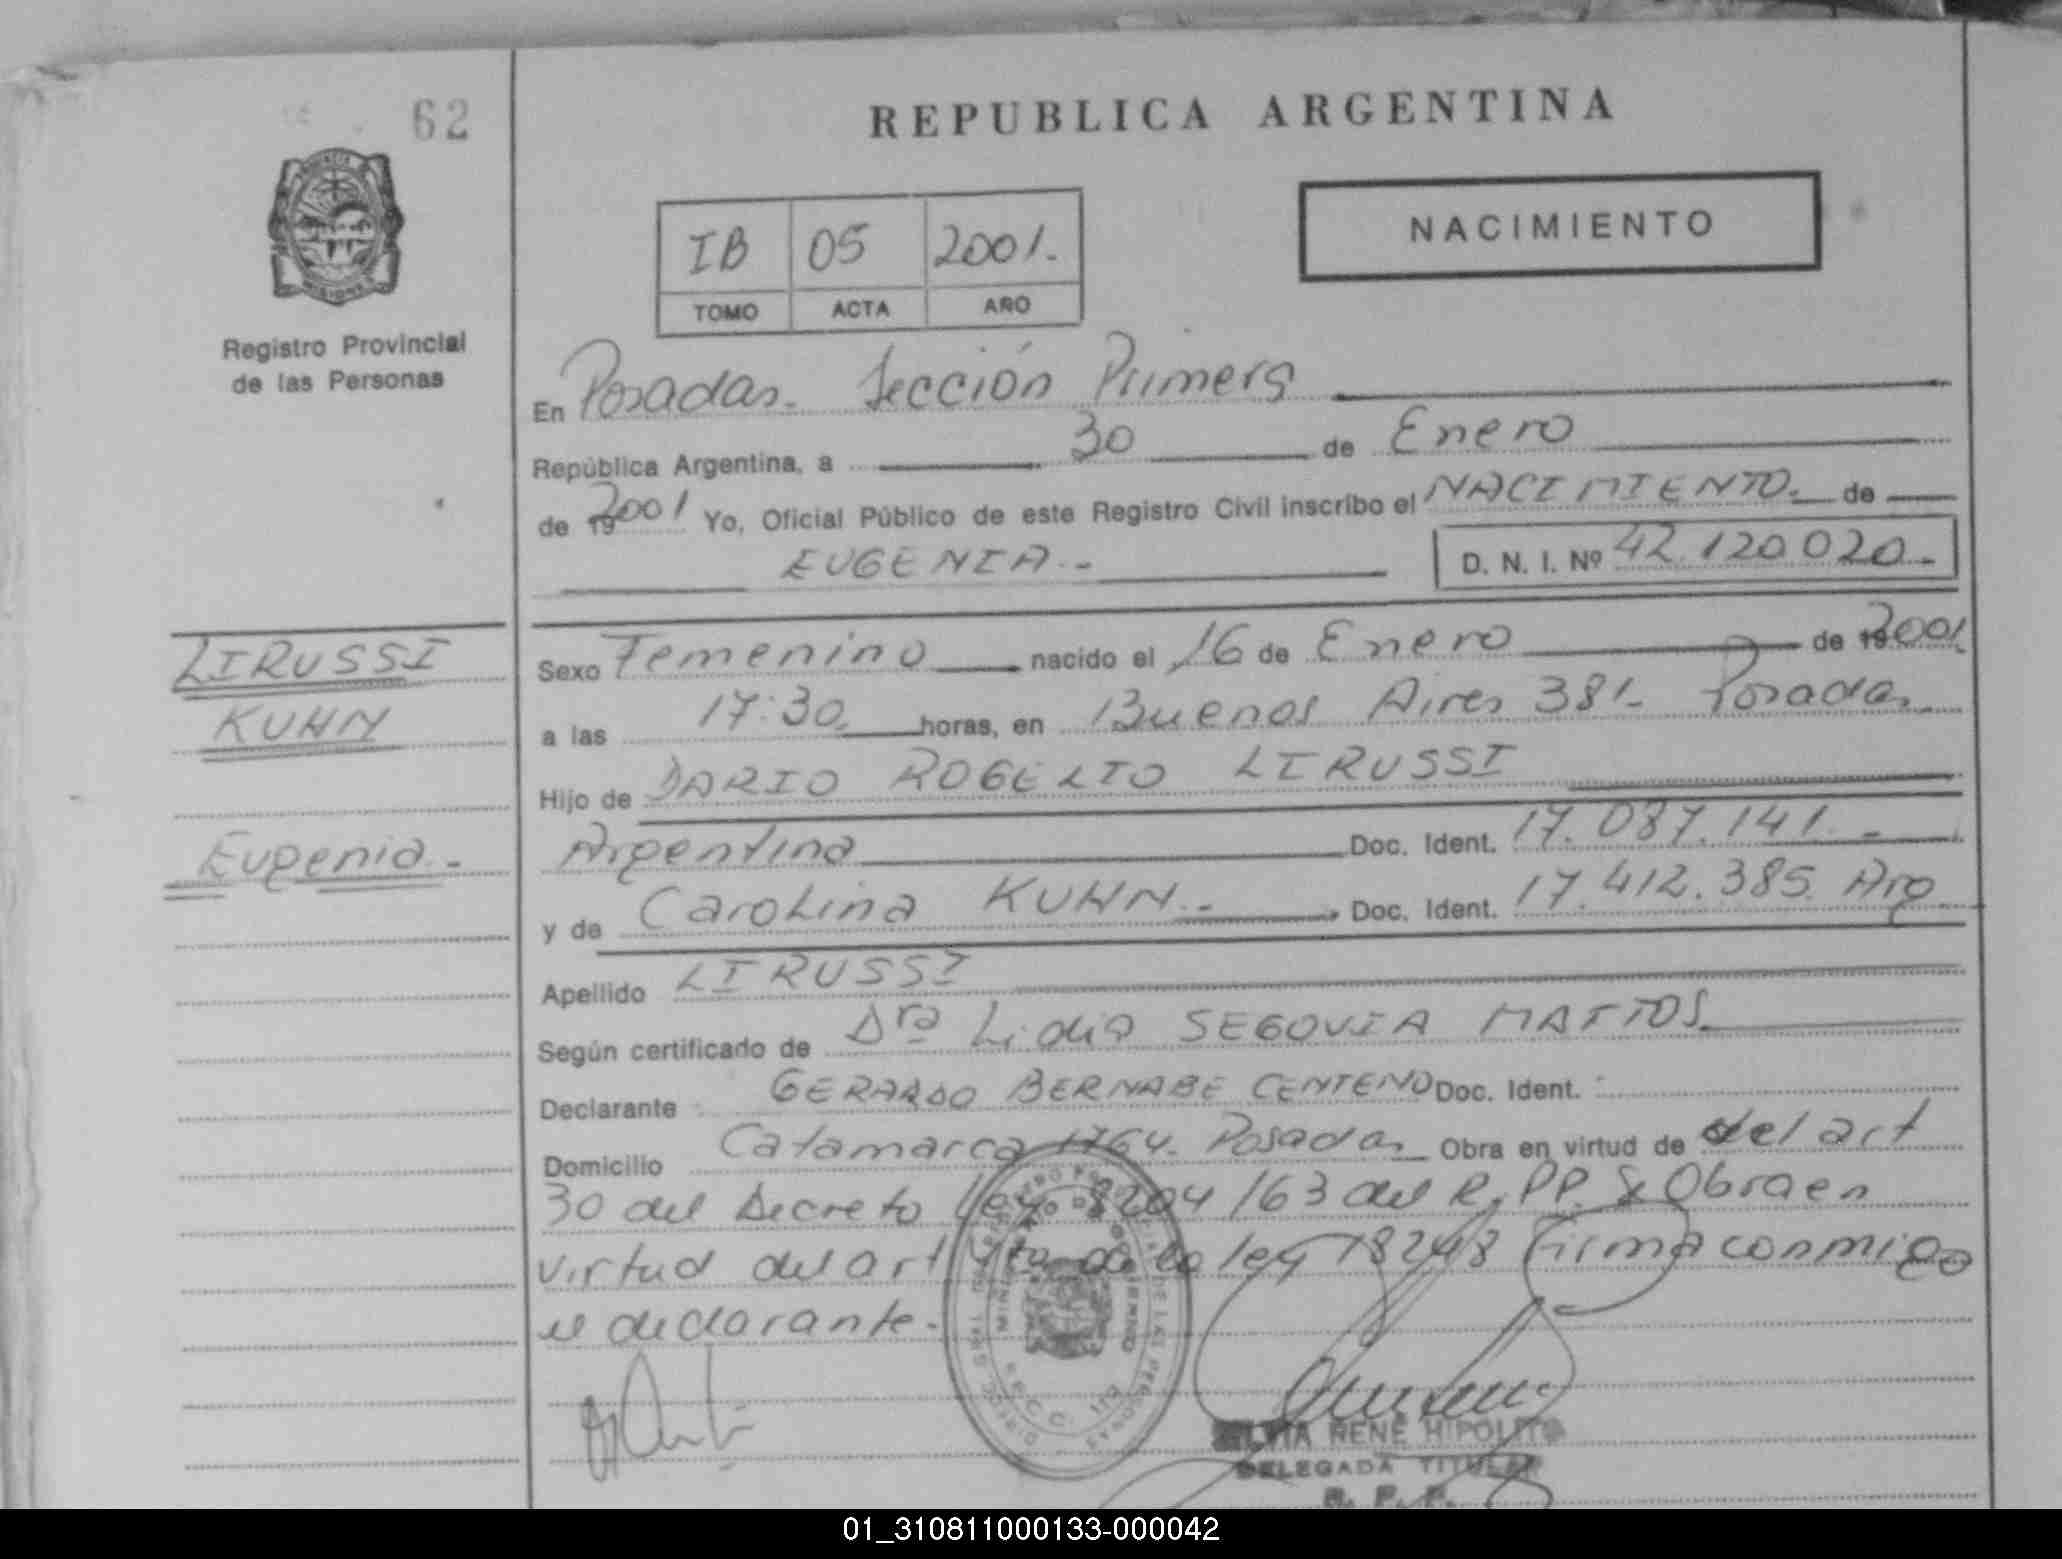 62
REPUBLICA ARGENTINA
NACIMIENTO
IB 05 2001.
TOMO ACTA AÑO
MISIONES
Registro Provincial
de las Personas
En Posadas. Sección Primera
República Argentina, a 30 de Enero
de 19 2001 Yo, Oficial Público de este Registro Civil inscribo el NACIMIENTO. de
EUGENIA.- D. N. I. Nº 42.120.020.-
LIRUSSI
KUHN
Eugenia.-
Sexo Femenino nacido el 16 de Enero de 19 2001.
a las 17:30 horas, en Buenos Aires 381- Posadas
Hijo de DARIO ROGELIO LIRUSSI
Argentina Doc. Ident. 17.087.141.-
y de Carolina KUHN.- Doc. Ident. 17.412.385. Arg
Apellido LIRUSSI
Según certificado de Dra Lidia SEGOVIA MATTOS.
Declarante GERARDO BERNABE CENTENO Doc. Ident.
Domicilio Catamarca 1764. Posadas Obra en virtud de del art
30 del Decreto ley 8204/63 del R. PP. Obra en
virtud del art 4to de la ley 18248 firma conmigo
el declarante.
RENE HIPOLITO
DELEGADA TITULAR
R. P. P.
01_310811000133-000042